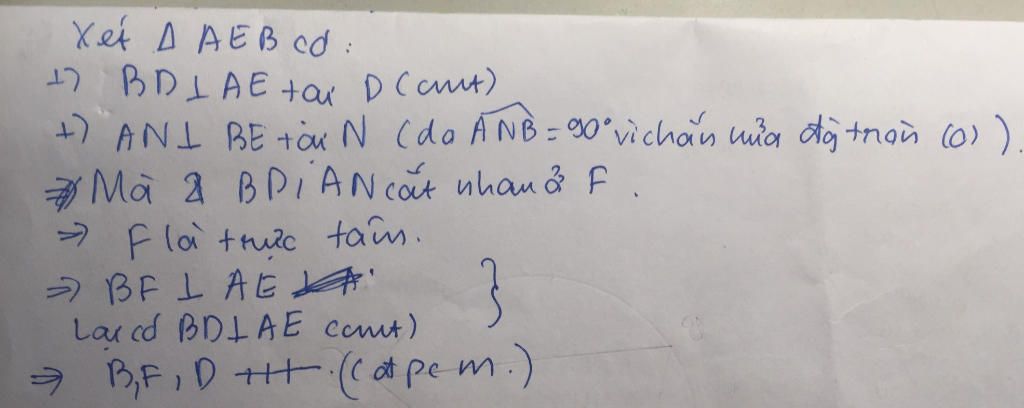 Xét Δ AEB có :
+) BD ⊥ AE tại D (cmt)
+) AN ⊥ BE tại N (do ANB = 90° vì chắn nửa đg tròn (O)).
Mà BD, AN cắt nhau ở F.
⇒ F là trực tâm.
⇒ BF ⊥ AE
Lại có BD ⊥ AE (cmt)
⇒ B, F, D (đpcm.)